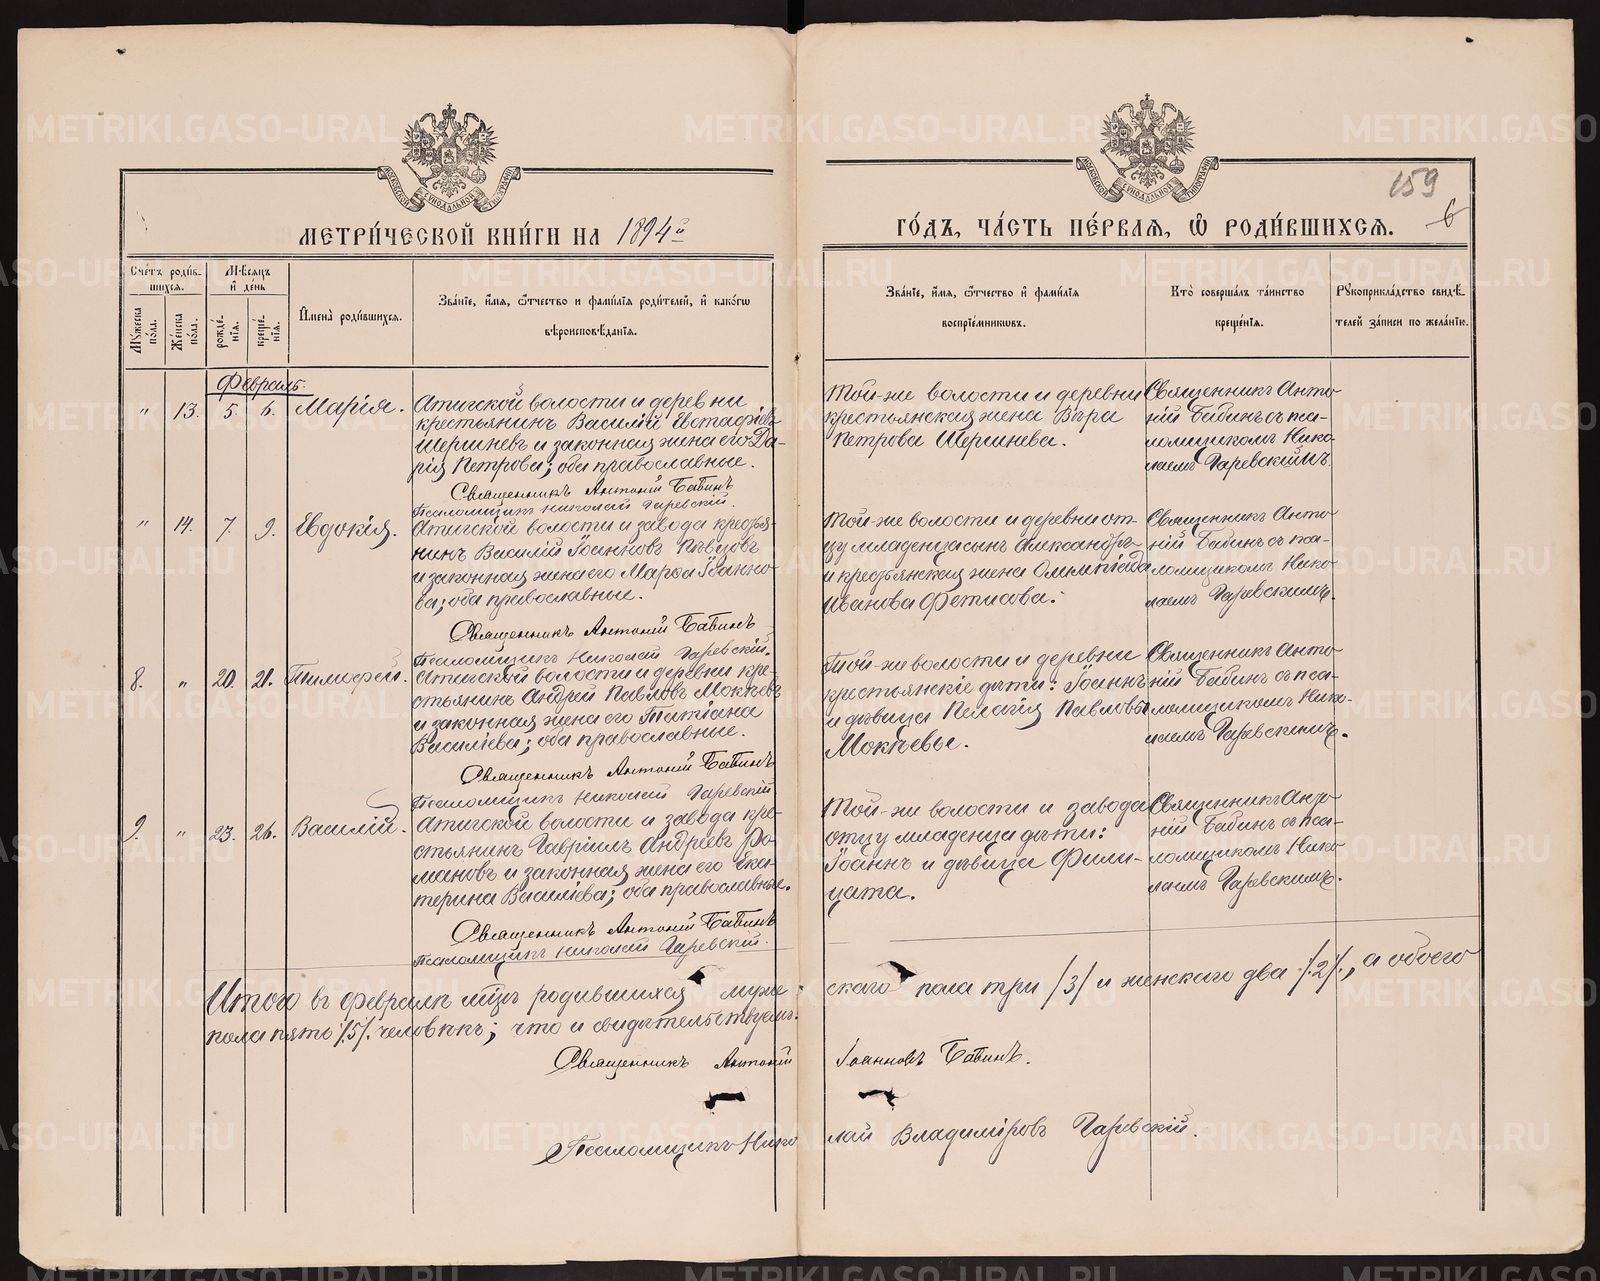 МЕТРИ́ЧЕСКОЙ КНИ́ГИ НА 1894й
ГО́ДЪ, ЧА́СТЬ ПЕ́РВАѦ, Ѽ РОДИ́ВШИХСѦ.
159
6
Сче́тъ роди́в-
шихсѧ.
Мꙋжеска по́ла.
Же́нска по́ла.
Мѣ́сѧцъ
и҆ де́нь
рожде́-
нїѧ.
креще́-
нїѧ.
И҆мена̀ роди́вшихсѧ.
Зва́нїе, и҆́мѧ, ѻ҆́тчество и҆ фами́лїѧ роди́телей, и҆ како́гѡ
вѣроисповѣ́данїѧ.
Зва́нїе, и҆́мѧ, ѻ҆́тчество и҆ фами́лїѧ
воспрїе́мниковъ.
Кто̀ соверша́лъ та́инство
креще́нїѧ.
Рꙋкоприкла́дство свидѣ́-
телей за́писи по жела́нїю.
Февраль.
„ 13. 5. 6. Марія.
Атигской волости и деревни
крестьянинъ Василій Евстафіевъ
Шершневъ и законная жена его Да-
рія Петрова; оба православные.
Священникъ Антоній Бабинъ
Псаломщикъ Николай Гаревскій.
Той-же волости и деревни
крестьянская жена Вѣра
Петрова Шершнева.
Священникъ Анто-
ній Бабинъ съ пса-
ломщикомъ Нико-
лаемъ Гаревскимъ.
„ 14. 7. 9. Евдокія.
Атигской волости и завода крестья-
нинъ Василій Іоанновъ Пѣвцовъ
и законная жена его Марѳа Іоанно-
ва; оба православные.
Священникъ Антоній Бабинъ
Псаломщикъ Николай Гаревскій.
Той-же волости и деревни от-
цу младенца сынъ Александръ
и крестьянская жена Олимпіада
Иванова Фетисова.
Священникъ Анто-
ній Бабинъ съ пса-
ломщикомъ Нико-
лаемъ Гаревскимъ.
8. „ 20. 21. Тимофей.
Атигской волости и деревни кре-
стьянинъ Андрей Павловъ Мокѣевъ
и законная жена его Татіана
Василіева; оба православные.
Священникъ Антоній Бабинъ
Псаломщикъ Николай Гаревскій
Той-же волости и деревни
крестьянскіе дѣти: Іоаннъ
и дѣвица Пелагія Павловы
Мокѣевы.
Священникъ Анто-
ній Бабинъ съ пса-
ломщикомъ Нико-
лаемъ Гаревскимъ.
9. „ 23. 26. Василій.
Атигской волости и завода кре-
стьянинъ Гавріилъ Андреевъ Ро-
мановъ и законная жена его Ека-
терина Василіева; оба православные.
Священникъ Антоній Бабинъ
Псаломщикъ Николай Гаревскій.
Той-же волости и завода
отцу младенца дѣти:
Іоаннъ и дѣвица Фили-
цата.
Священникъ Анто-
ній Бабинъ съ пса-
ломщикомъ Нико-
лаемъ Гаревскимъ.
Итого въ февралѣ м-цѣ родившихся муже-
скаго пола три /3/ и женскаго два /2/, а обоего
пола пять /5/ человѣкъ; что и свидѣтельствуемъ:
Священникъ Антоній Іоанновъ Бабинъ.
Псаломщикъ Николай Владиміровъ Гаревскій.
METRIKI.GASO-URAL.RU